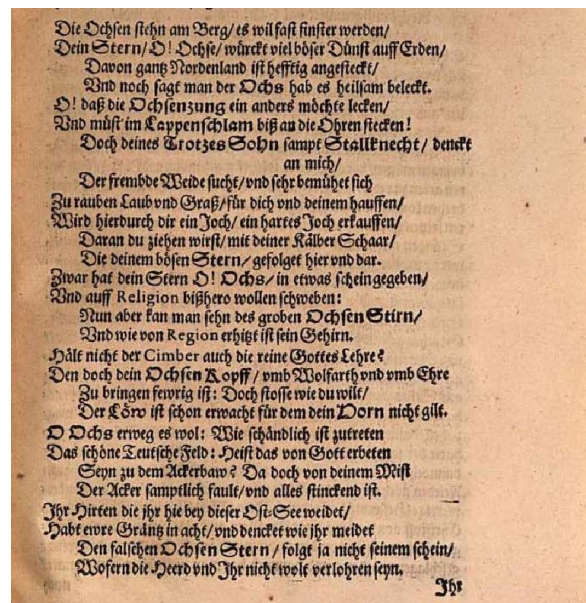 Die Ochsen stehn am Berg/ es wil fast finster werden/
Dein Stern/ O! Ochse/ würckt viel böser Dünst auff Erden/
Davon gantz Nordenland ist hefftig angesteckt/
Vnd noch sagt man der Ochs hab es heilsam beleckt.
O! daß die Ochsenzung ein anders möchte lecken/
Vnd müst im Lappenschlam biß an die Ohren stecken!
Doch deines Trotzes Sohn sampt Stallknecht/ denckt
an mich/
Der frembde Weide sucht/ vnd sehr bemühet sich
Zu rauben Laub vnd Graß/ für dich vnd deinem hauffen/
Wird hierdurch dir ein Joch/ ein hartes Joch erkauffen/
Daran du ziehen wirst/ mit deiner Kälber Schaar/
Die deinem bösen Stern/ gefolget hier vnd dar.
Zwar hat dein Stern O! Ochs/ in etwas schein gegeben/
Vnd auff Religion bißhero wollen schweben:
Nun aber kan man sehn des groben Ochsen Stirn/
Vnd wie von Region erhitzt ist sein Gehirn.
Hält nicht der Cimber auch die reine Gottes Lehre?
Den doch dein Ochsen Kopff/ vmb Wolfarth vnd vmb Ehre
Zu bringen fewrig ist: Doch stosse wie du wilt/
Der Löw ist schon erwacht für dem dein Horn nicht gilt.
O Ochs erweg es wol: Wie schändlich ist zutreten
Das schöne Teutsche Feld: Heist das von Gott erbeten
Seyn zu dem Ackerbaw? Da doch von deinem Mist
Der Acker samptlich fault/ vnd alles stinckend ist.
Ihr Hirten die jhr hie bey dieser Ost-See weidet/
Habt ewre Gräntz in acht/ vnd dencket wie jhr meidet
Den falschen Ochsen Stern/ folgt ja nicht seinem schein/
Wofern die Heerd vnd Ihr nicht wolt verlohren seyn.
Ihr